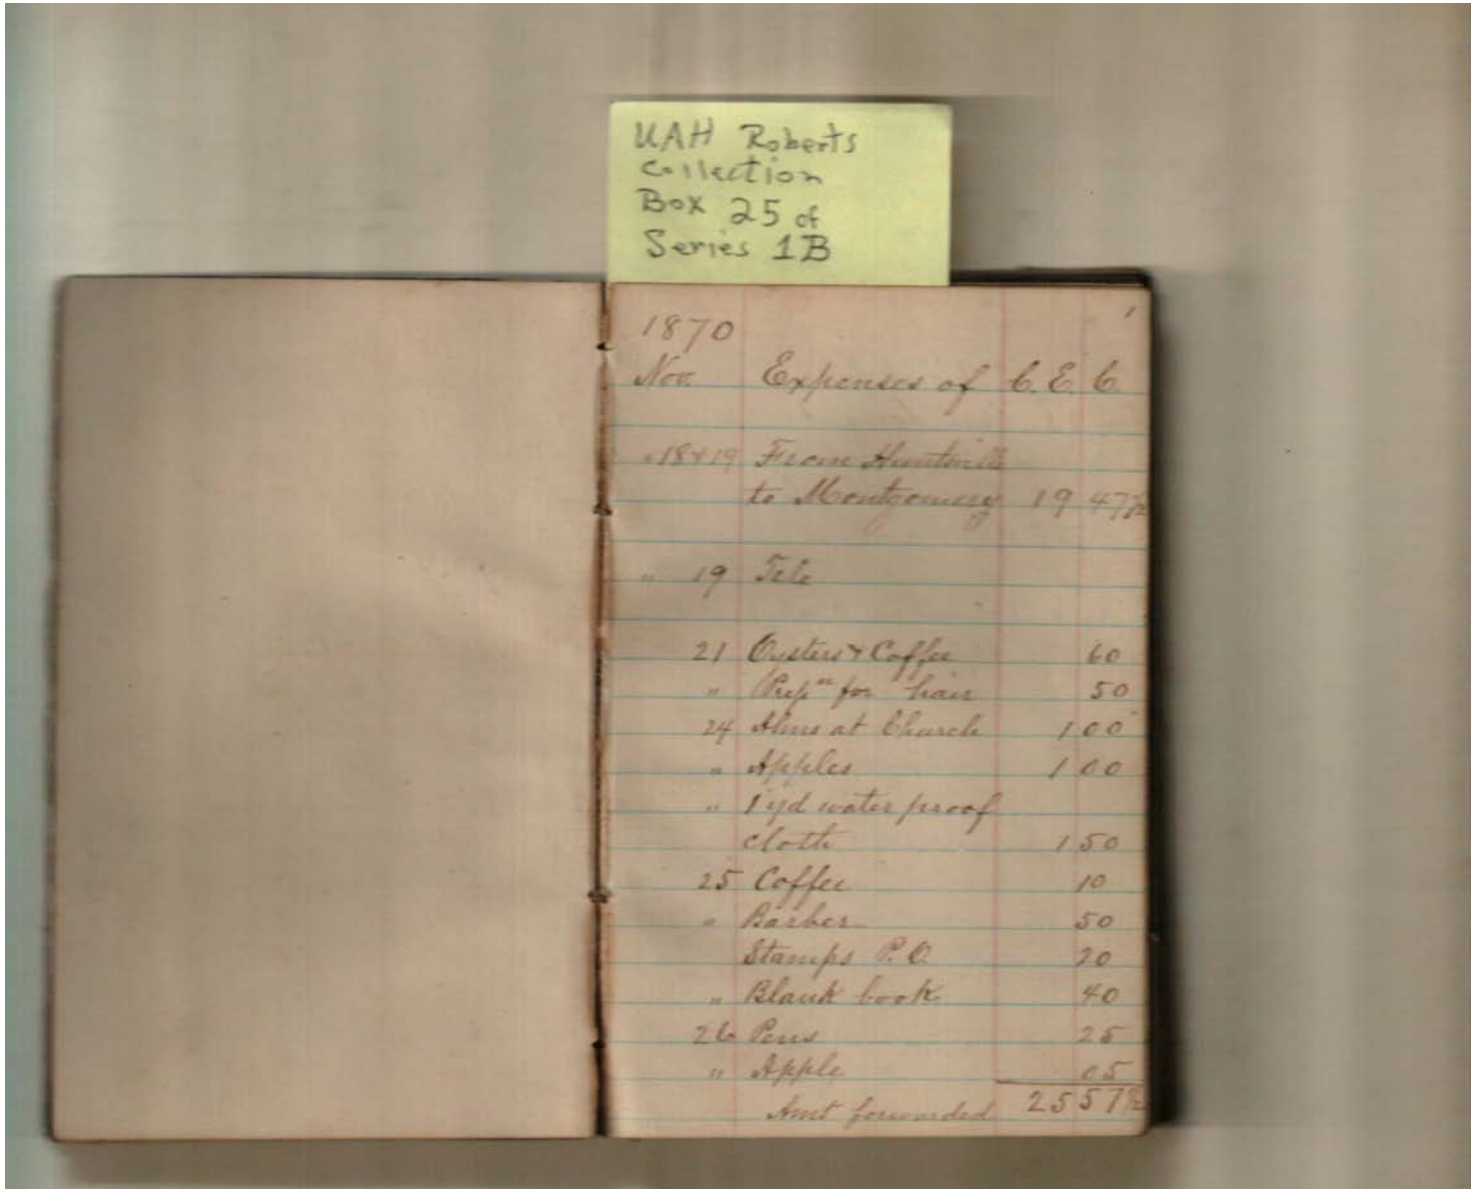 UAH Roberts
Collection
Box 25 of
Series 1B
1
1870
Nov. Expenses of C. E. C.
" 18 & 19 From Huntsville
to Montgomery 19 47 1/2
" 19 Tele
21 Oysters & Coffee 60
" Prepn for hair 50
24 Alms at Church 1 00
" Apples 1 00
" 1 yd water proof
cloth 1 50
25 Coffee 10
" Barber 50
Stamps P. O. 20
" Blank book 40
26 Pens 25
" Apple 05
Amt forwarded 25 57 1/2